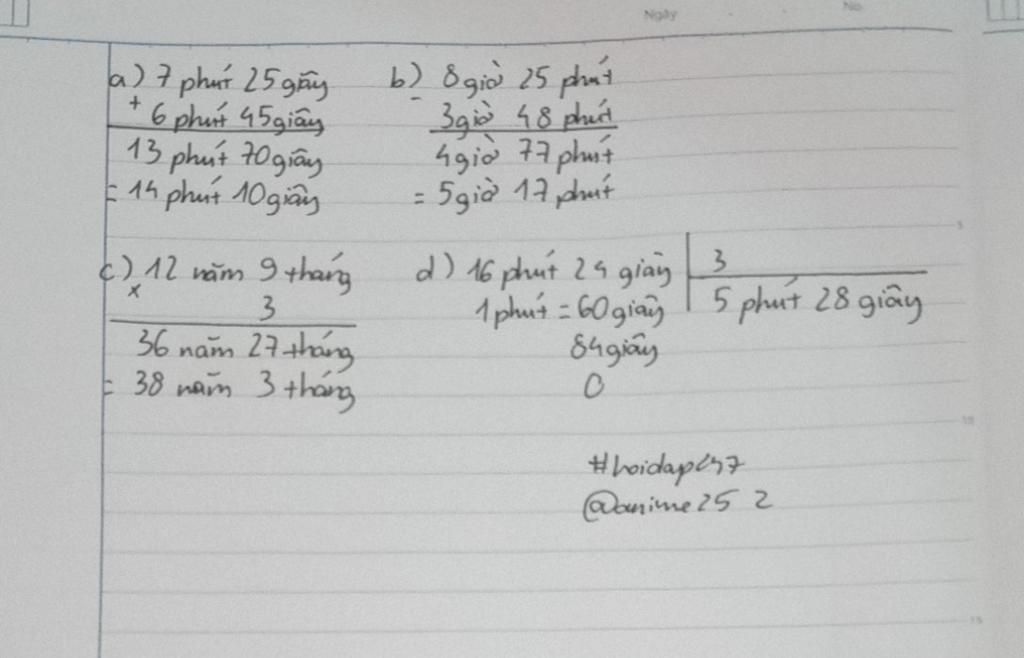 Ngày
No
a) 7 phút 25 giây
+ 6 phút 45 giây
13 phút 70 giây
= 14 phút 10 giây
b) 8 giờ 25 phút
- 3 giờ 48 phút
4 giờ 77 phút
= 5 giờ 17 phút
c) 12 năm 9 tháng
x 3
36 năm 27 tháng
= 38 năm 3 tháng
d) 16 phút 24 giây 3
1 phút = 60 giây 5 phút 28 giây
84 giây
0
#hoidap247
@anime25 2
5
10
15